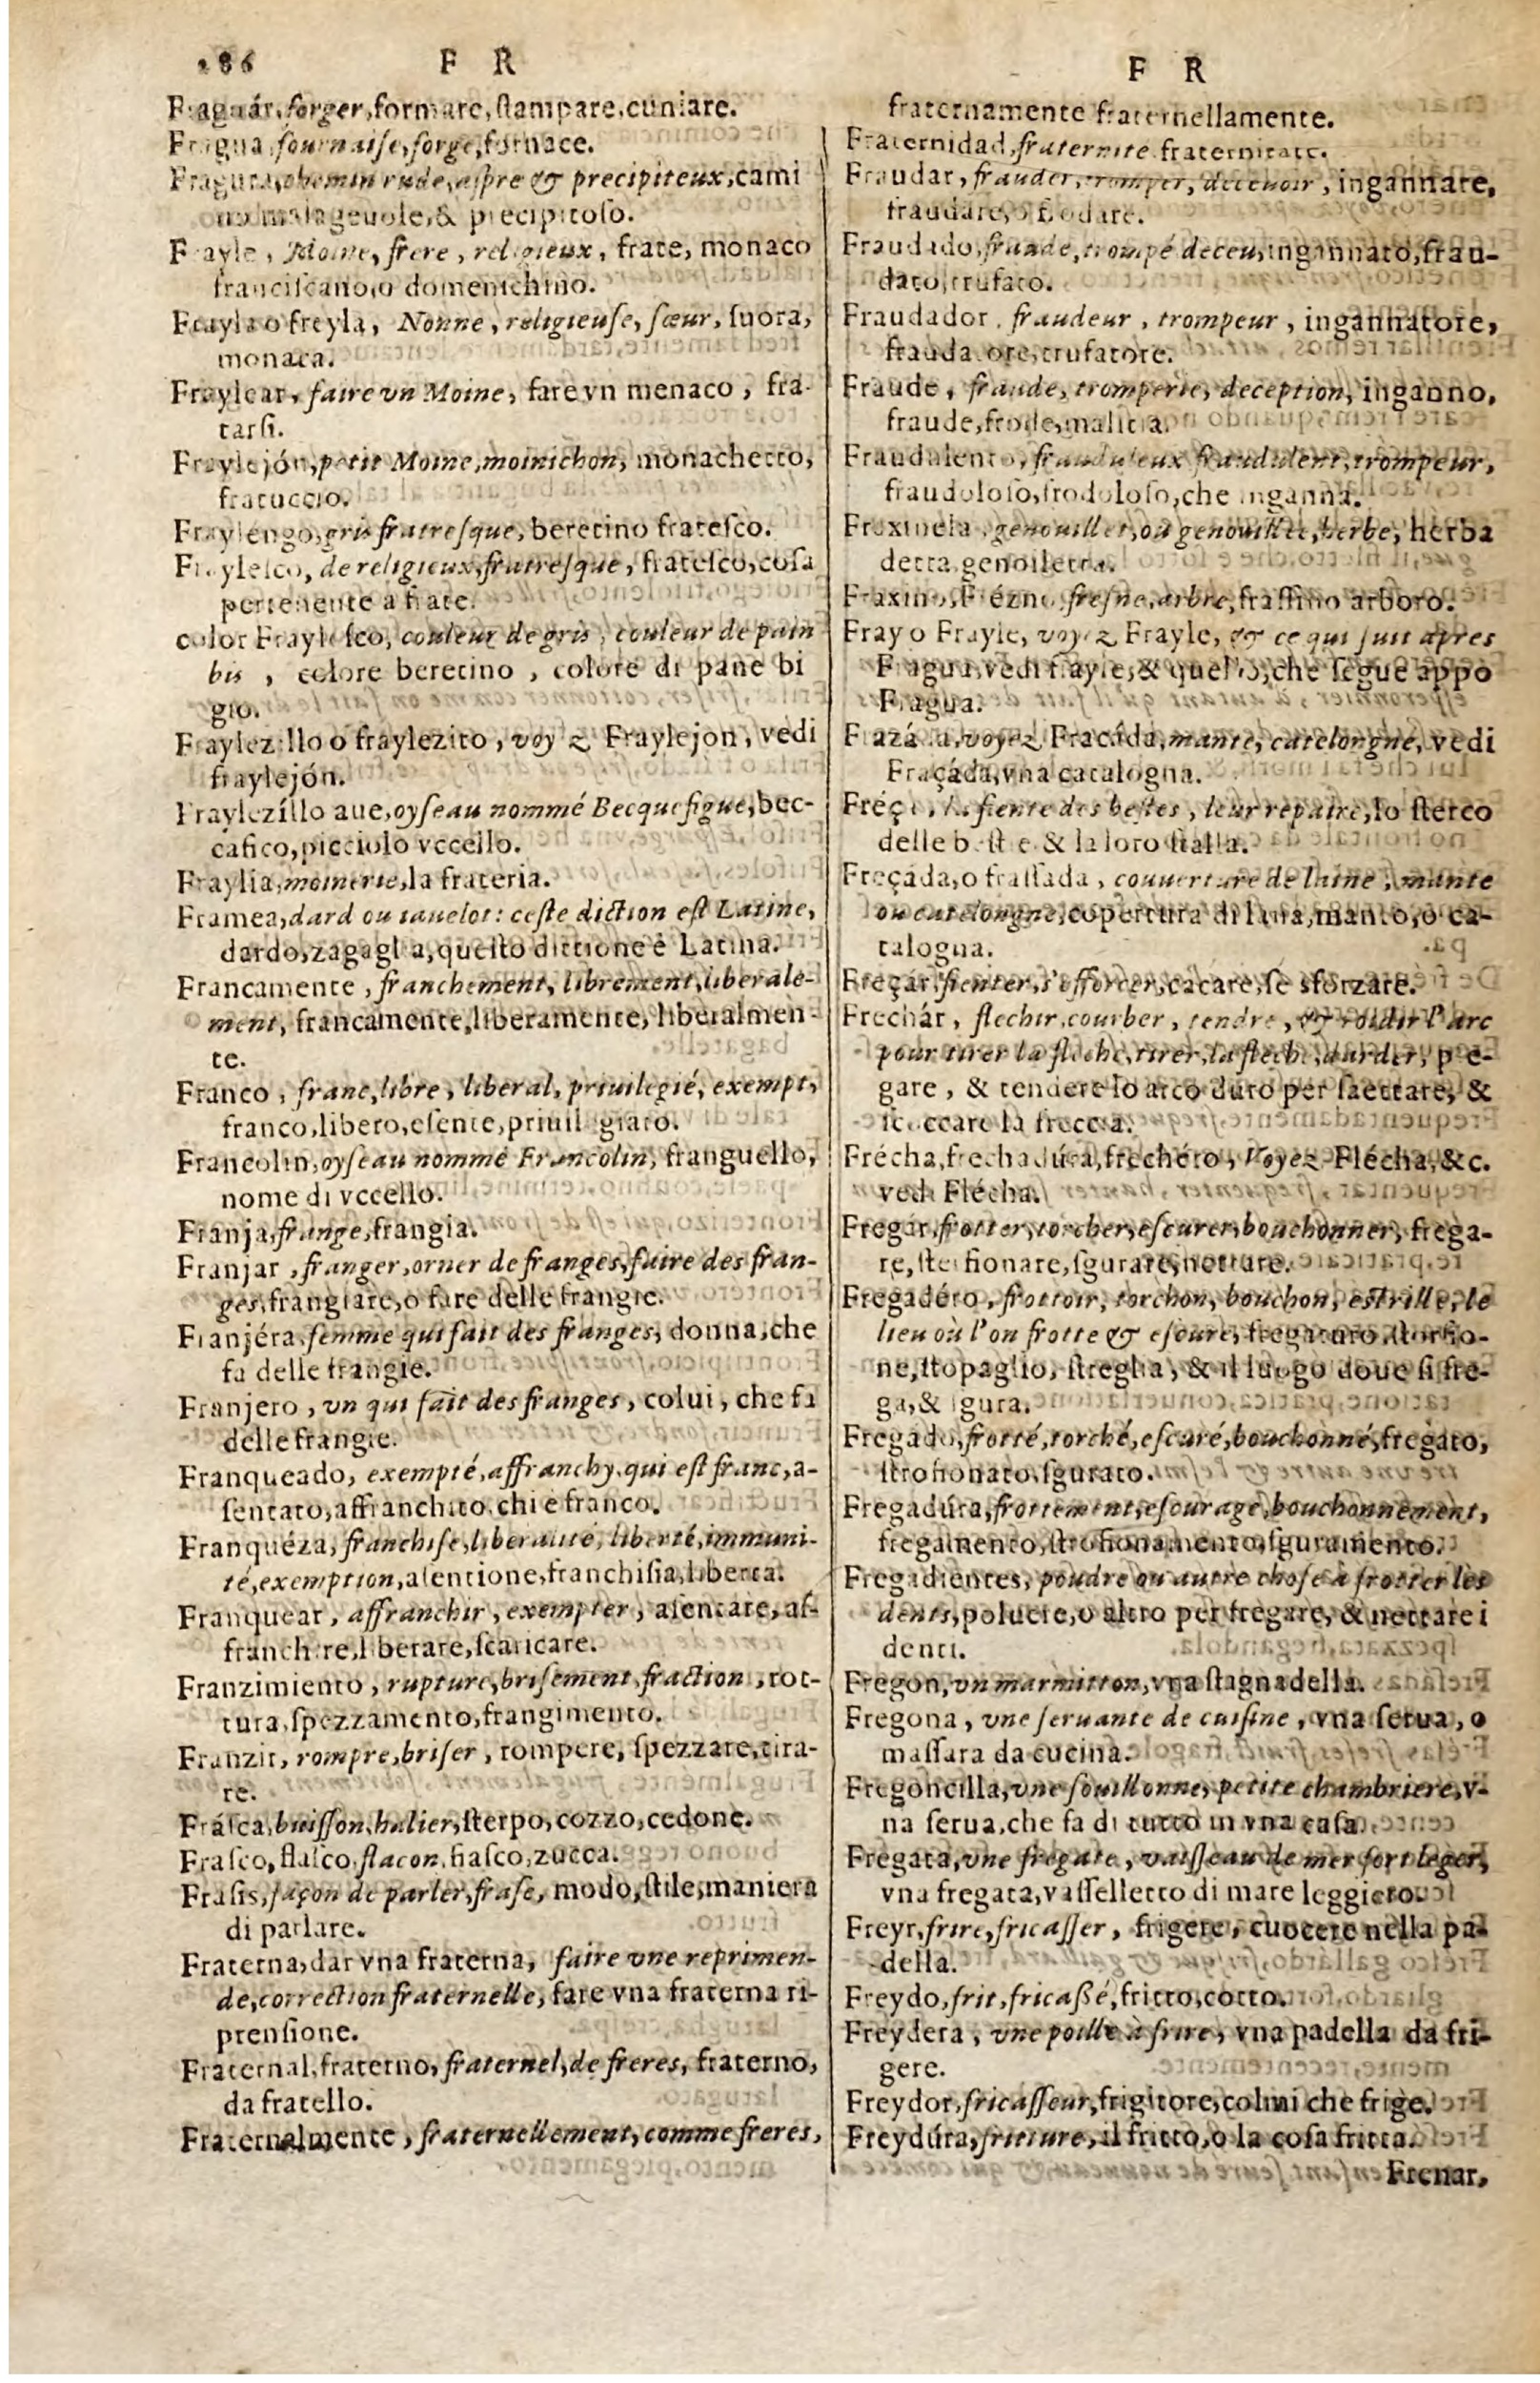 286 F R
Fraguár, forger, formare, ſtampare, cuniare.
Fragua, fournaiſe, forge, fornace.
Fragura, chemin rude, aſpre & precipiteux, cami
no malageuole, & precipitoſo.
Frayle, Moine, frere, religieux, frate, monaco
franciſcano, o domenichino.
Frayla o freyla, Nonne, religieuſe, ſœur, ſuora,
monaca.
Fraylear, faire vn Moine, fare vn menaco, fra-
tarſi.
Fraylejón, petit Moine, moinichon, monachetto,
fratuccio.
Fraylengo, gris fratreſque, beretino frateſco.
Frayleſco, de religieux, fratreſque, frateſco, coſa
pertenente a frate.
color Frayleſco, couleur de gris, couleur de pain
bis, colore beretino, colore di pane bi
gio.
Fraylezillo o fraylezito, voyez Fraylejon, vedi
fraylejón.
Fraylezíllo aue, oyſeau nommé Becquefigue, bec-
cafico, picciolo vccello.
Fraylia, moinerie, la frateria.
Framea, dard ou iauelot: ceſte diction eſt Latine,
dardo, zagaglia, queſto dittione è Latina.
Francamente, franchement, librement, liberale-
ment, francamente, liberamente, liberalmen-
te.
Franco, franc, libre, liberal, priuilegié, exempt,
franco, libero, eſente, priuilegiato.
Francolin, oyſeau nommé Francolin, franguello,
nome di vccello.
Franja, frange, frangia.
Franjar, franger, orner de franges, faire des fran-
ges, frangiare, o fare delle frangie.
Franjéra, femme qui fait des franges, donna, che
fa delle frangie.
Franjero, vn qui fait des franges, colui, che fa
delle frangie.
Franqueado, exempté, affranchy, qui eſt franc, a-
ſentato, affranchito, chi e franco.
Franquéza, franchiſe, liberalité, liberté, immuni-
té, exemption, aſentione, franchiſia, liberta.
Franquear, affranchir, exempter, aſentare, af-
franchire, liberare, ſcaricare.
Franzimiento, rupture, briſement, fraction, rot-
tura, ſpezzamento, frangimento.
Franzir, rompre, briſer, rompere, ſpezzare, tira-
re.
Fráſca, buiſſon, halier, ſterpo, cozzo, cedone.
Fraſco, flaſco, flacon, fiaſco, zucca.
Fraſis, façon de parler, fraſe, modo, ſtile, maniera
di parlare.
Fraterna, dar vna fraterna, faire vne reprimen-
de, correction fraternelle, fare vna fraterna ri-
prenſione.
Fraternal, fraterno, fraternel, de freres, fraterno,
da fratello.
Fraternalmente, fraternellement, comme freres,
F R
fraternamente fraternellamente.
Fraternidad, fraternité fraternitate.
Fraudar, frauder, tromper, deceuoir, ingannare,
fraudare, o frodare.
Fraudado, fraudé, trompé deceu, ingannato, frau-
dato, trufato.
Fraudador, fraudeur, trompeur, ingannatore,
fraudatore, trufatore.
Fraude, fraude, tromperie, deception, inganno,
fraude, frode, malitia.
Fraudulento, frauduleux fraudulent, trompeur,
fraudoloſo, frodoloſo, che inganna.
Fraxinela, genouillet, ou genouillée, herbe, herba
detta genoiletta.
Fraxino, Frézno, freſne, arbre, fraſſino arboro.
Fray o Frayle, voyez Frayle, & ce qui ſuit apres
Fragua, vedi frayle, & quello, che ſegue appo
Fragua.
Frazáda, voyez Fraçáda, mante, catelongne, vedi
Fraçáda, vna catalogna.
Fréça, la fiente des beſtes, leur repaire, lo ſterco
delle beſtie & la loro ſtalla.
Freçáda, o fraſſada, couuerture de laine, mante
ou catelongne, copertura di lana, manto, o ca-
talogna.
Freçár, fienter, s'efforcer, cacare, ſe sforzare.
Frechár, flechir, courber, tendre, & roidir l'arc
pour tirer la fleche, tirer, la fleche, darder, pie-
gare, & tendere lo arco duro per ſaettare, &
ſcoccare la freccia.
Frécha, frechadúra, frechéro, Voyez Flécha, &c.
vedi Flécha.
Fregár, frotter, torcher, eſcurer, bouchonner, frega-
re, ſtrofionare, ſgurare, nettare.
Fregadéro, frottoir, torchon, bouchon, eſtrille, le
lieu où l'on frotte & eſcure, fregaturo, ſtorfio-
ne, ſtopaglio, ſtreglia, & il luogo doue ſi fre-
ga, & ſgura.
Fregado, frotté, torché, eſcuré, bouchonné, fregato,
ſtrofionato, ſgurato.
Fregadúra, frottement, eſcurage, bouchonnement,
fregamento, ſtrofionamento, ſguramento.
Fregadientes, poudre ou autre choſe à frotter les
dents, poluere, o altro per fregare, & nettare i
denti.
Fregon, vn marmitton, vna ſtagnadella.
Fregona, vne ſeruante de cuiſine, vna ſerua, o
maſſara da cucina.
Fregoncilla, vne ſouillonne, petite chambriere, v-
na ſerua, che fa di tutto in vna caſa.
Fregata, vne fregate, vaiſſeau de mer fort leger,
vna fregata, vaſſelletto di mare leggiero.
Freyr, frire, fricaſſer, frigere, cuocere nella pa-
della.
Freydo, frit, fricaßé, fritto, cotto.
Freydera, vne poille à frire, vna padella da fri-
gere.
Freydor, fricaſſeur, frigitore, colui che frige.
Freydúra, friture, il fritto, o la coſa fritta.
Frenar,